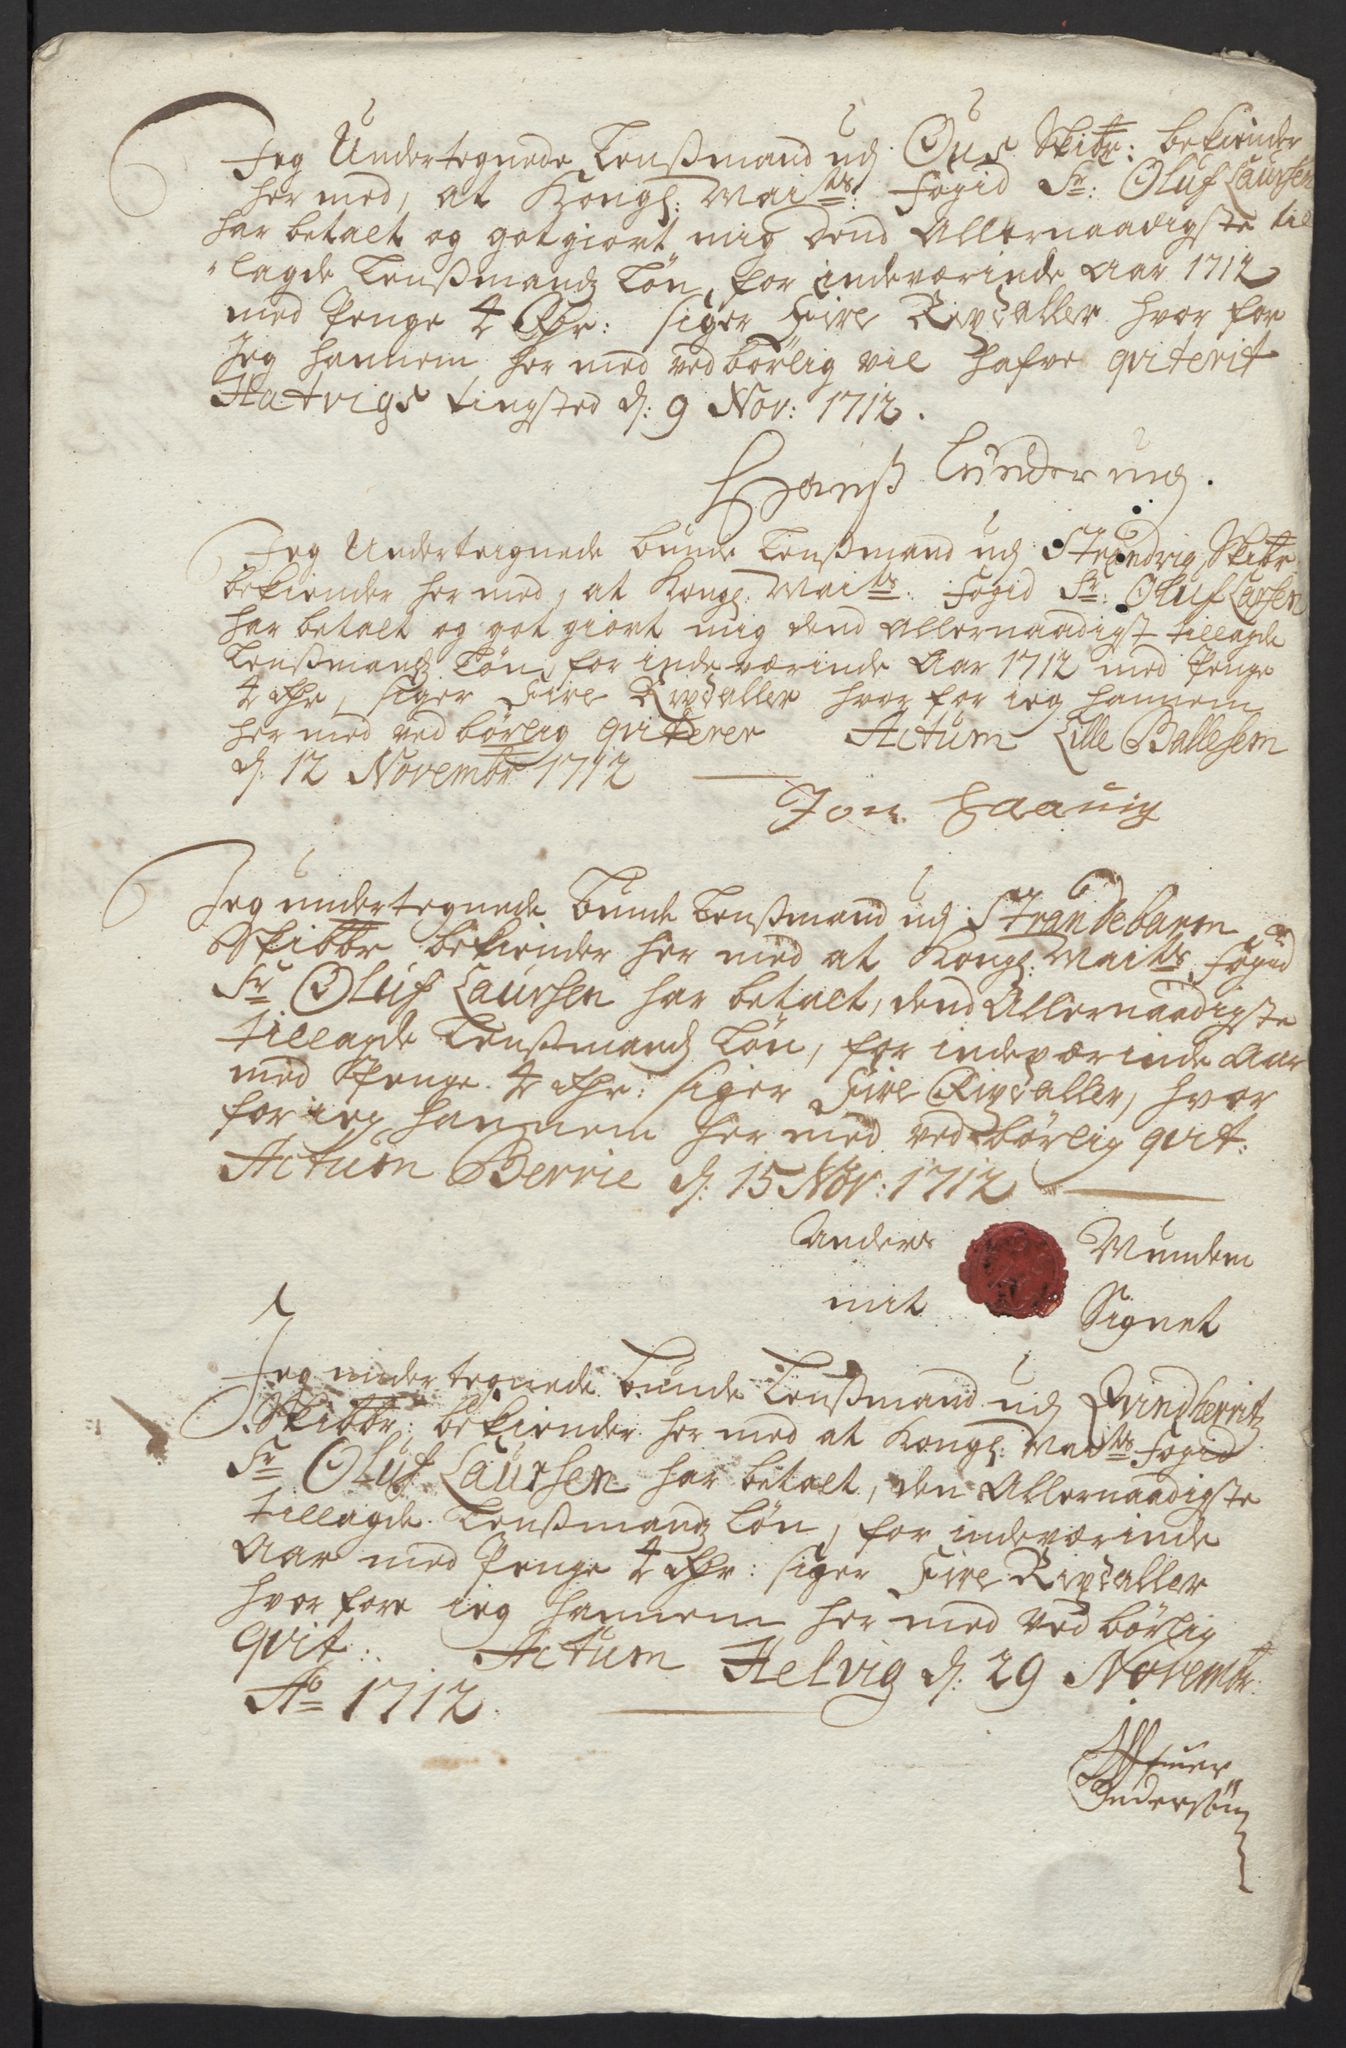 Jeg Undertegnede Lensmand udj Ous Skibr: bekiender
her med, at Kongl: Maits: Fogid Sr: Oluf Laursen
har betalt og got giort mig dend Allernaadigste til
"lagde Lensmandz Løn, for indeværinde Aar 1712
med Penge 4 Rdr: siger Fire Rixdaller hvor for
Jeg hannem her med ved børlig vil hafve qviterit
Hatvigs Tingsted d: 9 Nov: 1712.
Hanß Lunder
Jeg Underteignede bunde Lensmand udj Strandvig Skibr
bekiender her med, at Kongl: Maits: Fogid Sr: Oluf Larsen
har betalt og got giort mig dend allernaadigst tillagde
Lensmandz Løn, for inde værinde Aar 1712 med Penge
4 Rdr, siger Fire Rixdaller hvor for ieg hannem
her med ved børlig qviterer Actum Lille Ballesem
d: 12 Novembr 1712
Jon Haavig
Jeg undertegnede Bunde Lensmand udj Strandebarm
Skibbr bekiender her med at Kongl: Maits Fogid
Sr Oluf Laursen har betalt, dend Allernaadigste
tillagde Lensmandz Løn, for indeværinde Aar
med Penge 4 Rdr: siger Fire Rixdaller, hvor
for ieg hannem her med ved børlig qvit:
Actum Berrie d: 15 Nov: 1712
Anders Mundem
mit Signet
Jeg undertegnede bunde Lensmand udj Qvindherritz
Skibbr: bekiender her med at Kongl: Maits Fogid
Sr Oluf Laursen har betalt, den Allernaadigste
tillagde Lensmandz Løn, for indeværinde
Aar med Penge 4 Rdr: siger Fire Rixdaller
hvor fore ieg hannem her med ved børlig
qvit: Actum Helvig d: 29 Novembr:
Ao 1712.
Andersøn